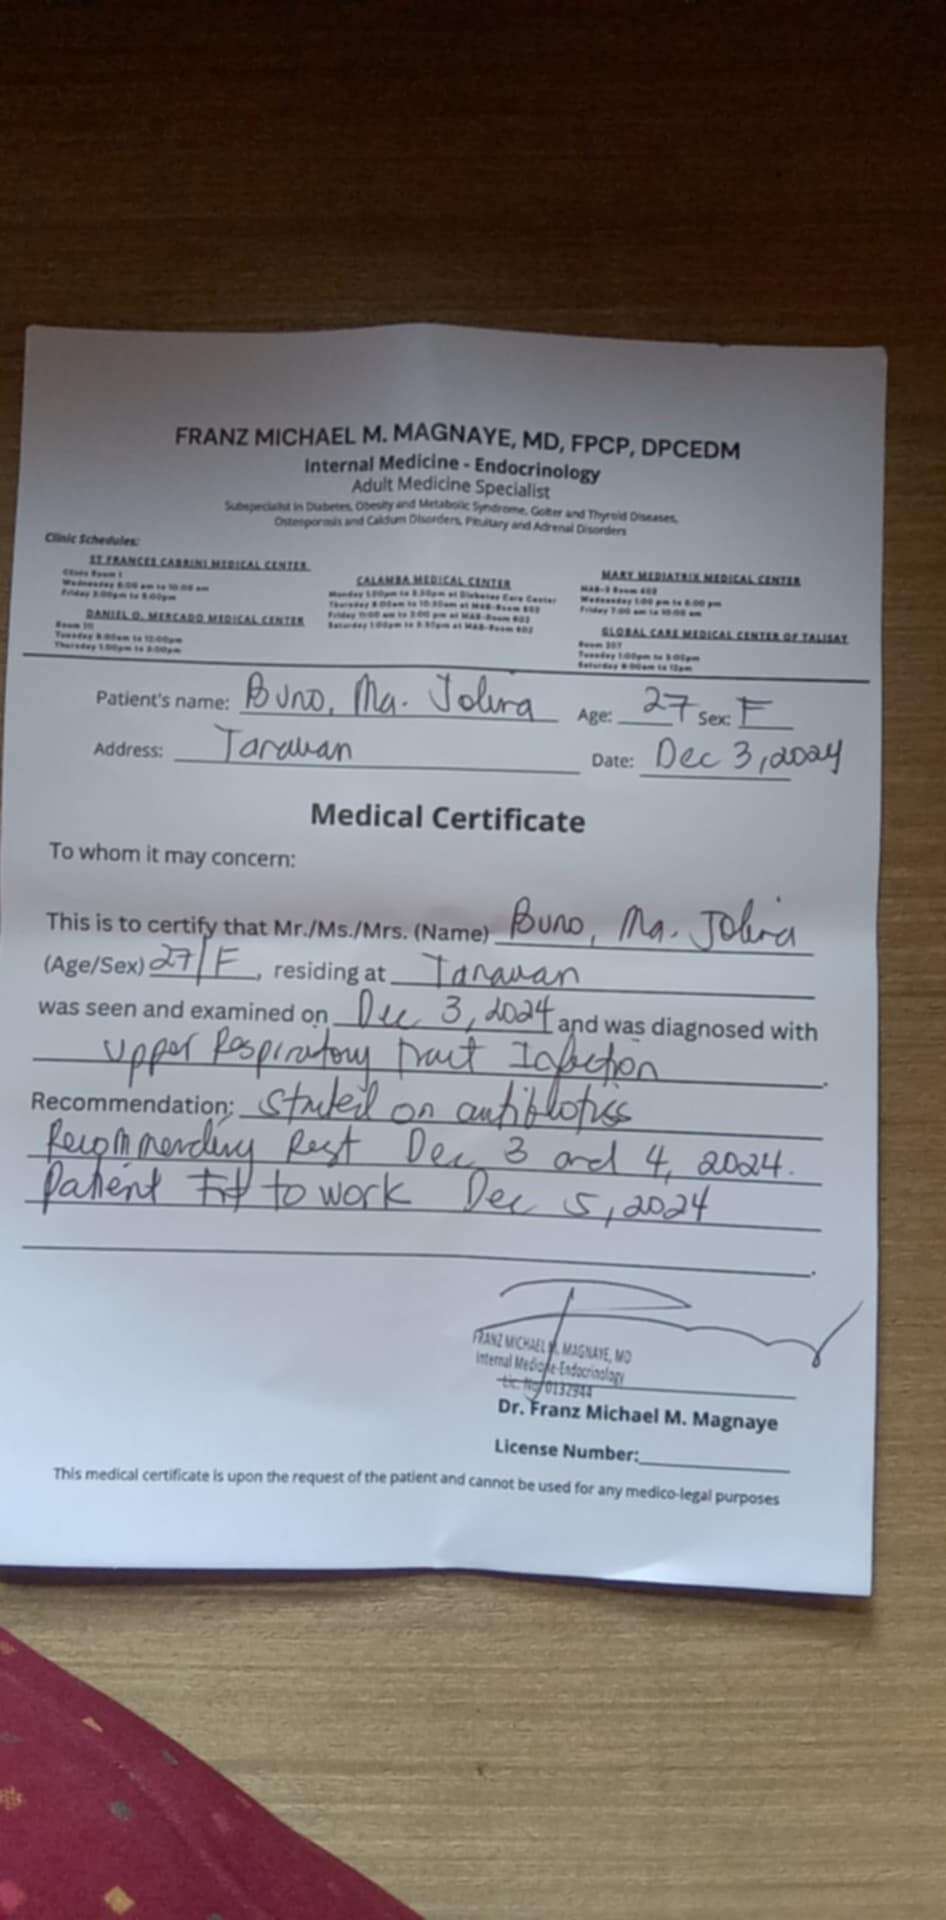 FRANZ MICHAEL M. MAGNAYE, MD, FPCP, DPCEDM
Internal Medicine - Endocrinology
Adult Medicine Specialist
Subspecialist in Diabetes, Obesity and Metabolic Syndrome, Goiter and Thyroid Diseases,
Osteoporosis and Calcium Disorders, Pituitary and Adrenal Disorders
Clinic Schedules:
ST FRANCES CABRINI MEDICAL CENTER
Clinic Room 1
Wednesday 8:00 am to 10:00 am
Friday 3:00pm to 5:00pm
DANIEL O. MERCADO MEDICAL CENTER
Room 111
Tuesday 9:00am to 12:00pm
Thursday 1:00pm to 3:00pm
CALAMBA MEDICAL CENTER
Monday 1:30pm to 3:30pm at Diabetes Care Center
Thursday 8:00am to 10:30am at MAB-Room 802
Friday 11:00 am to 2:00 pm at MAB-Room 802
Saturday 1:00pm to 3:30pm at MAB-Room 802
MARY MEDIATRIX MEDICAL CENTER
Wednesday 1:00 pm to 5:00 pm
Friday 7:00 am to 10:00 am
GLOBAL CARE MEDICAL CENTER OF TALISAY
Room 207
Tuesday 1:00pm to 3:00pm
Saturday 9:00am to 12pm
Patient's name: Buno, Ma. Jolina Age: 27 Sex: F
Address: Tanauan Date: Dec 3, 2024
Medical Certificate
To whom it may concern:
This is to certify that Mr./Ms./Mrs. (Name) Buno, Ma. Jolina
(Age/Sex) 27/F, residing at Tanauan
was seen and examined on Dec 3, 2024 and was diagnosed with
Upper Respiratory Tract Infection.
Recommendation: Started on antibiotics
Recommending Rest Dec 3 and 4, 2024.
Patient Fit to work Dec 5, 2024
FRANZ MICHAEL M. MAGNAYE, MD
Internal Medicine-Endocrinology
Lic. No. 0132944
Dr. Franz Michael M. Magnaye
License Number:
This medical certificate is upon the request of the patient and cannot be used for any medico-legal purposes